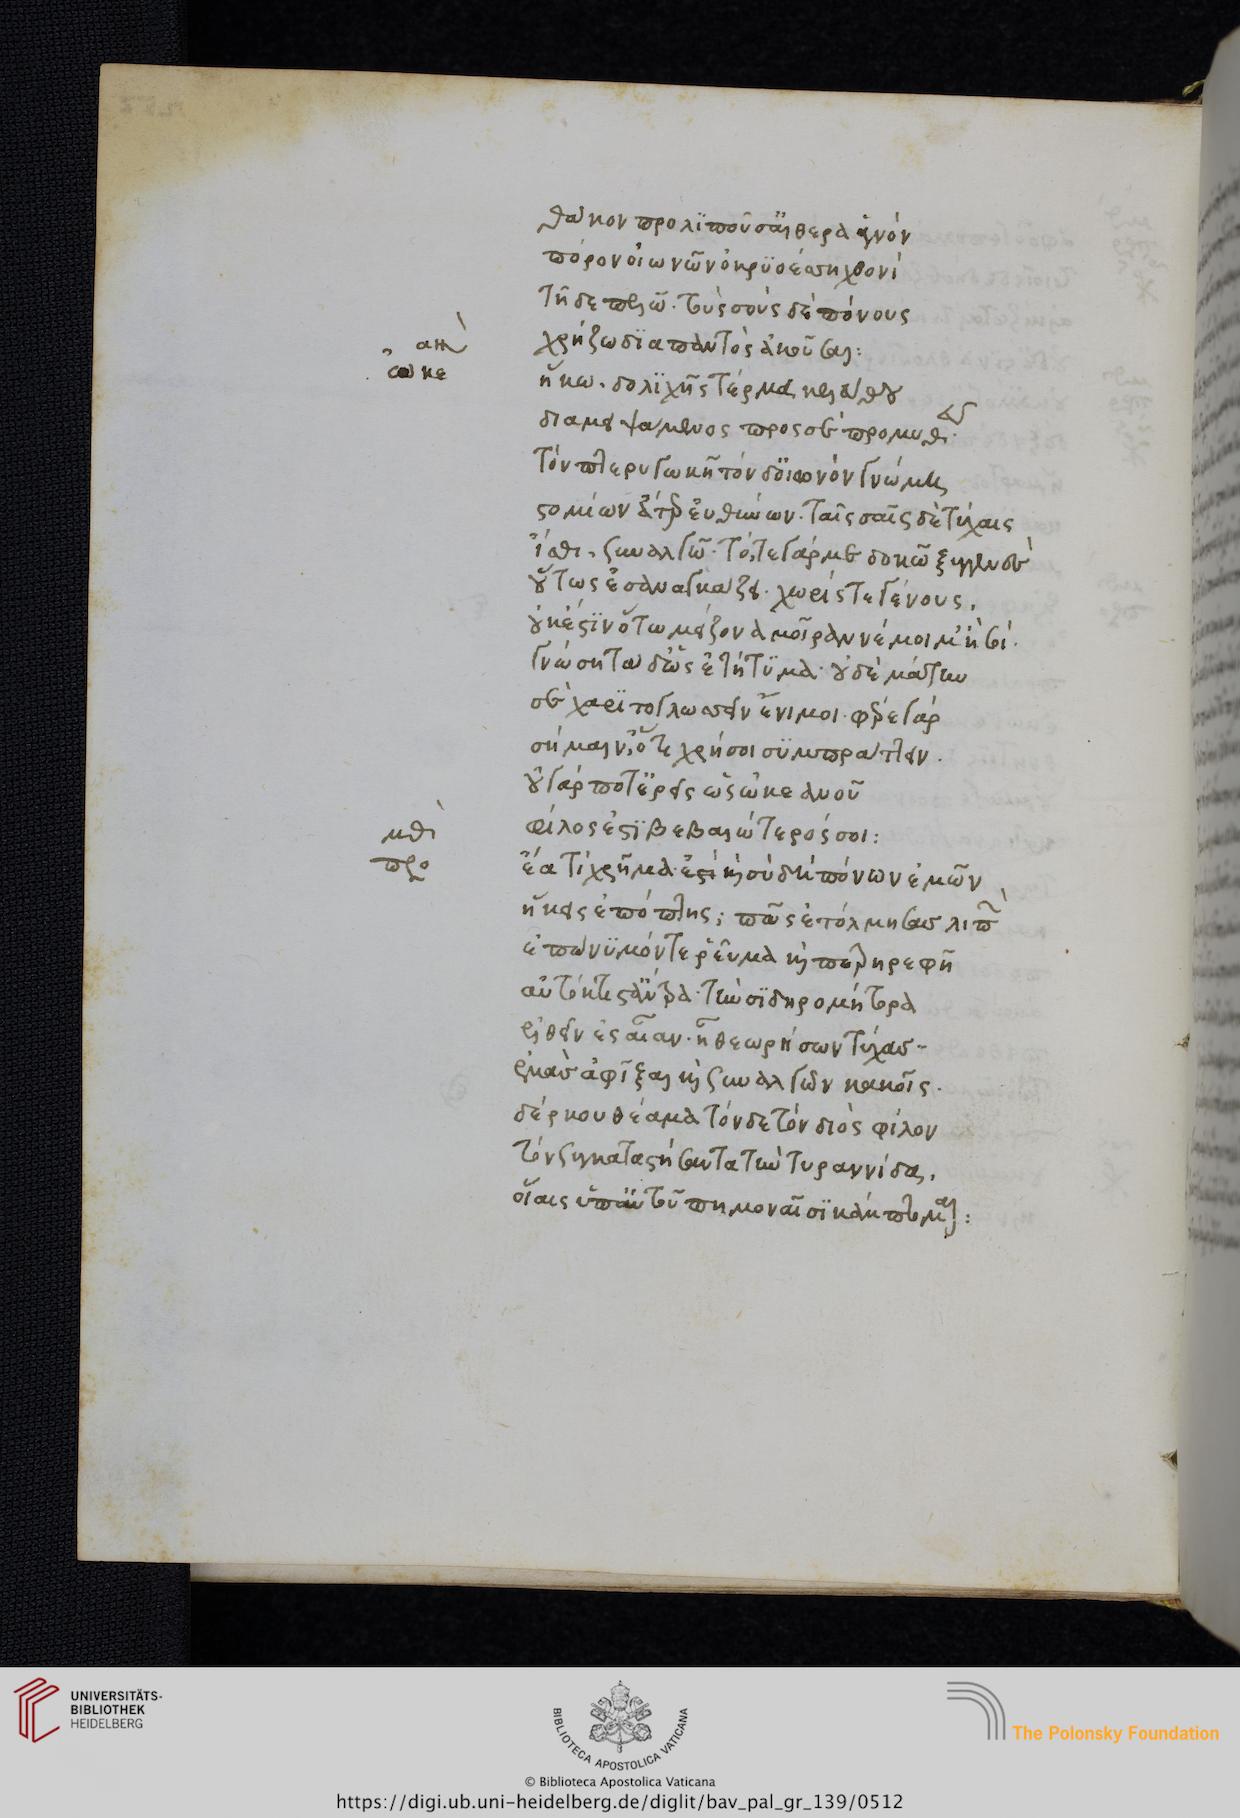 θᾶκον προλϊποῦσ' αἰθέρα ἁγνόν
πόρον οἰωνῶν ὀκρϋοέσση χθονί
τῆδε πελῶ· τοὺς σοὺς δὲ πόνους
χρήζω δϊαπαντὸς ἀκοῦσαι:
ὠκε
ἥκω. δολϊχῆς τέρμα κελεύθου
διαμειψάμενος πρὸς σὲ προμηθεῦ·
τὸν πτερυγωκῆ τόνδ' οἰωνὸν γνώμη
στομίων ἄτερ εὐθύνων· ταῖς σαῖς δὲ τύχαις
ἴσθι. συναλγῶ· τό, τε γάρ με δοκῶ ξυγγενὲς
οὕτως ἐσαναγκάζει· χωρίς τε γένους.
οὐκ ἔστϊν ὅτω μείζονα μοῖραν νέμοιμ' ἢ σοί·
γνώση τάδ' ὡς ἐτήτϋμα· οὐδὲ μάτην
σὲ χαρϊτογλωσσεῖν ἔνι μοι· φέρε γάρ
σήμαιν', ὅ, τι χρή σοι σϋμπράττειν·
οὐ γάρ ποτ' ἐρεῖς ὡς ὠκεανοῦ
φίλος ἐστϊ βεβαιώτερός σοι:
προ
ἔα τί χρῆμα· ἐστί καὶ σὺ δὴ πόνων ἐμῶν
ἥκεις ἐπόπτης; πῶς ἐτόλμησας λιπὼν
ἐπώνϋμόν τε ῥεῦμα καὶ πετρηρεφῆ
αὐτόκτιστ' ἄντρα· τὴν σϊδηρομήτορα
ἐλθεῖν ἐς αἶαν· ἢ θεωρήσων τύχας
ἐμὰς ἀφῖξαι καὶ συναλγῶν κακοῖς·
δέρκου θέαμα τόνδε τὸν διὸς φίλον
τὸν συγκαταστήσαντα τὴν τυραννίδα.
οἵαις ὑπ' αὐτοῦ πημοναῖσϊ κάμπτομαι:
UNIVERSITÄTS-
BIBLIOTHEK
HEIDELBERG
BIBLIOTECA APOSTOLICA VATICANA
The Polonsky Foundation
© Biblioteca Apostolica Vaticana
https://digi.ub.uni-heidelberg.de/diglit/bav_pal_gr_139/0512